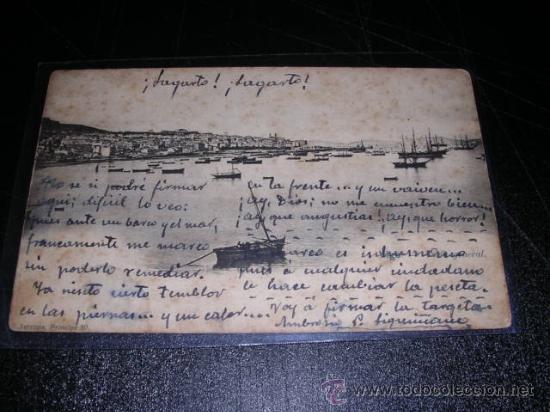 ¡Lagarto! ¡Lagarto!
No se si podré firmar
aquí; difícil lo veo:
pues ante un barco y el mar,
francamente me mareo
sin poderlo remediar.
Ya siento cierto temblor
en las piernas... y un calor...
en la frente... y un vaiven...
¡ay, Dios; no me encuentro bien...
¡ay que angustias! ¡ay que horror!
barco es
pues a cualquier ciudadano
le hace cambiar la peseta.
Voy a firmar la targeta.
Ambrosio
general.
www.todocoleccion.net